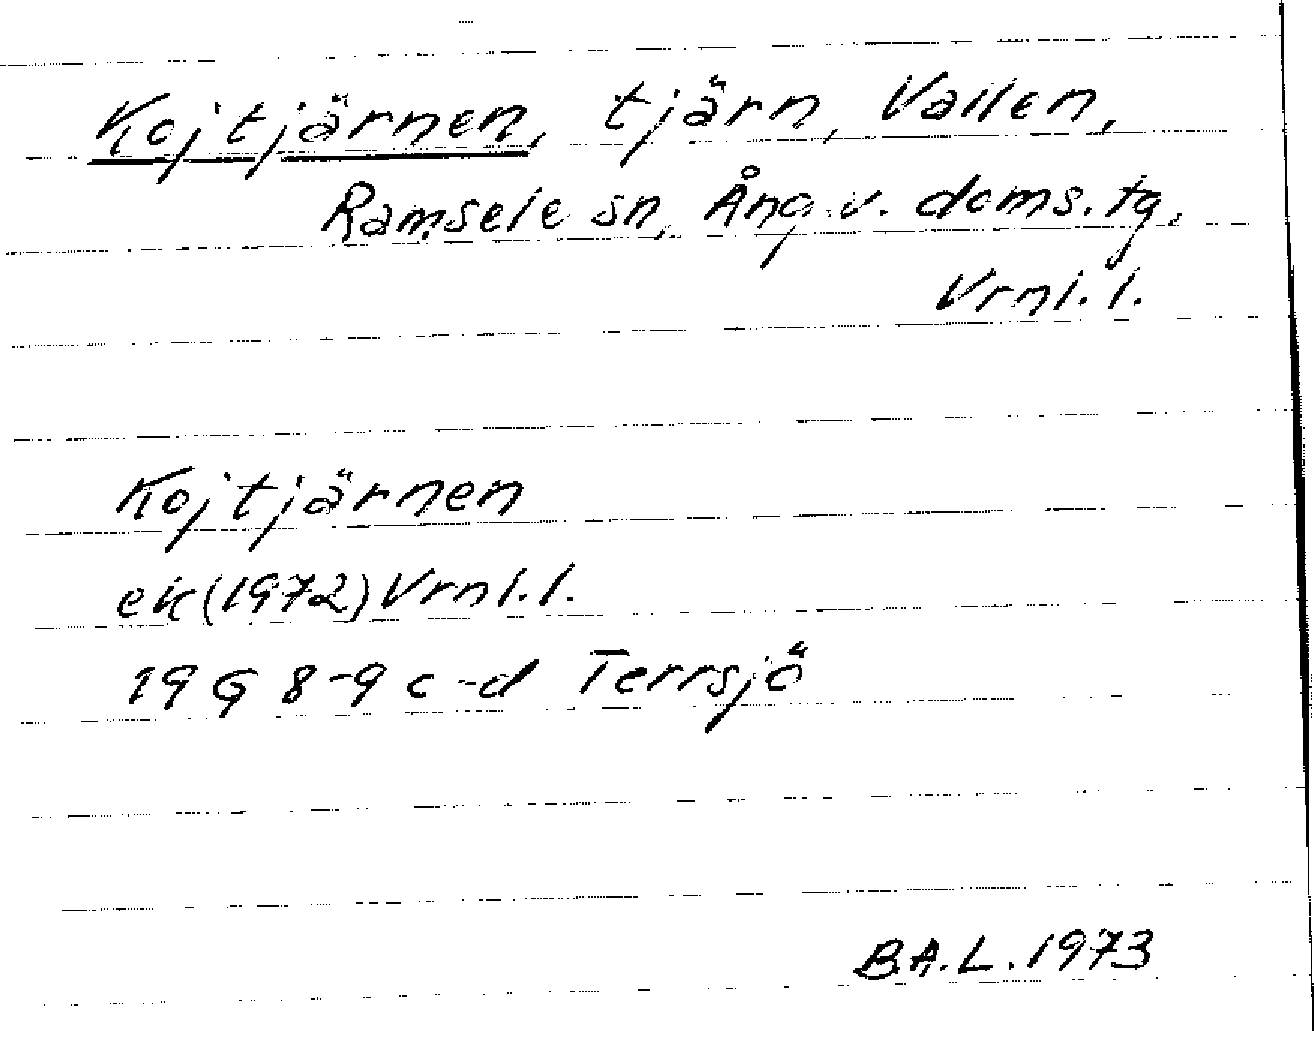 Kojtjärnen, tjärn, Vallen,
Ramsele sn, Ång.v. doms.tg,
Vrnl.l.
Kojtjärnen
ek(1972)Vrnl.l.
19 G 8-9 c-d Terrsjö
B.A.L. 1973